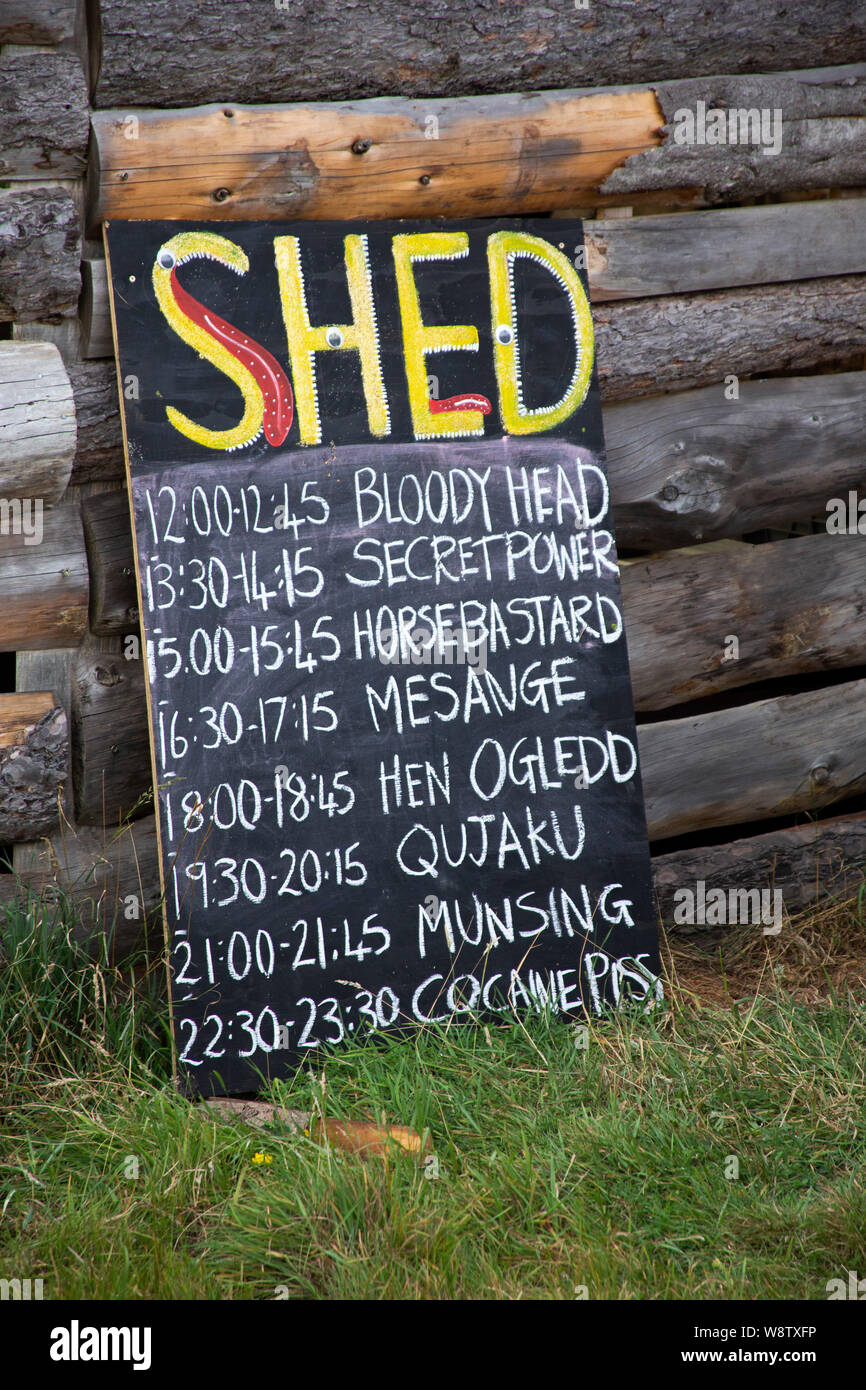 SHED
12:00-12:45 BLOODY HEAD
13:30-14:15 SECRET POWER
15.00-15:45 HORSEBASTARD
16:30-17:15 MESANGE
18:00-18:45 HEN OGLEDD
19:30-20:15 QUJAKU
21:00-21:45 MUNSING
22:30-23:30 COCAINE PISS
alamy
Image ID: W8TXFP
www.alamy.com